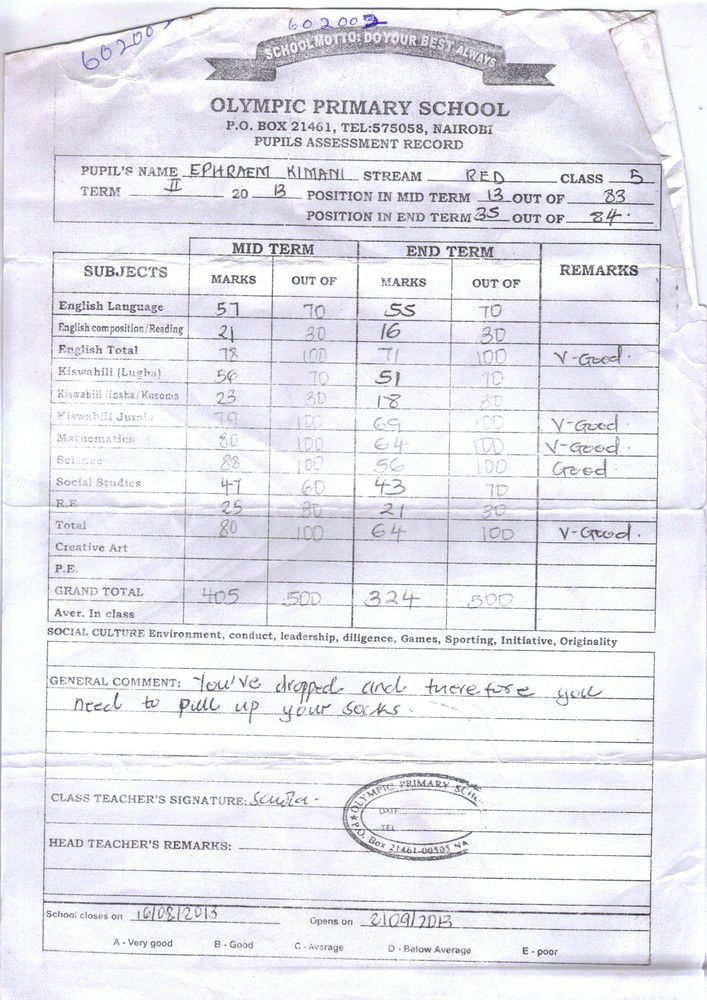 602002
602002
SCHOOL MOTTO: DO YOUR BEST ALWAYS
OLYMPIC PRIMARY SCHOOL
P.O. BOX 21461, TEL:575058, NAIROBI
PUPILS ASSESSMENT RECORD
PUPIL'S NAME EPHRAEM KIMANI STREAM RED CLASS 5
TERM II 20 13 POSITION IN MID TERM 13 OUT OF 83
POSITION IN END TERM 35 OUT OF 84.
MID TERM END TERM
SUBJECTS MARKS OUT OF MARKS OUT OF REMARKS
English Language 57 70 55 70
English composition/Reading 21 30 16 30
English Total 78 100 71 100 V-Good.
Kiswahili (Lugha) 56 70 51 70
Kiswahili /Insha/Kusoma 23 30 18 30
Kiswahili Jumla 79 100 69 100 V-Good
Mathematics 80 100 64 100 V-Good.
Science 88 100 56 100 Good.
Social Studies 47 60 43 70
R.E 25 30 21 30
Total 80 100 64 100 V-Good.
Creative Art
P.E.
GRAND TOTAL 405 500 324 500
Aver. In class
SOCIAL CULTURE Environment, conduct, leadership, diligence, Games, Sporting, Initiative, Originality
GENERAL COMMENT: You've dropped and therefore you
need to pull up your socks.
CLASS TEACHER'S SIGNATURE:
OLYMPIC PRIMARY SCH
DATE
TEL
P.O. Box 21461-00505 NA
HEAD TEACHER'S REMARKS:
School closes on 16/08/2013 Opens on 2/09/2013
A - Very good B - Good C - Average D - Below Average E - poor